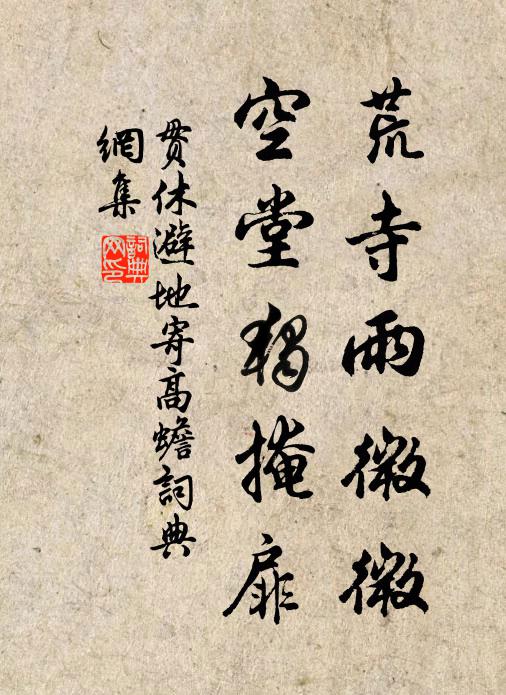 荒寺雨微微
空堂獨掩扉
貫休避地寄高蟾詞典
網集
詞典
网印